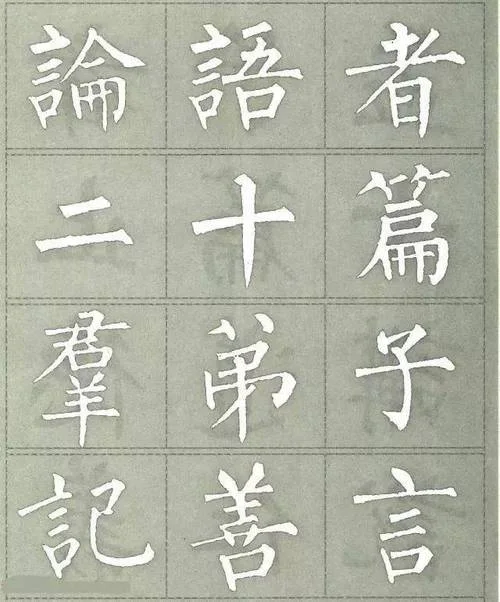 論語者
二十篇
羣弟子
記善言